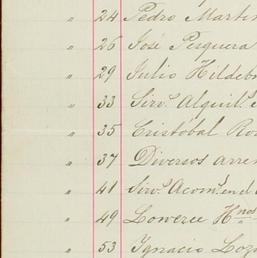 " 24 Pedro Martin
" 26 José Pesquera
" 29 Julio Hildeb
" 33 Sirv.s Alquil.
" 35 Cristóbal Ro
" 37 Diversos arre
" 41 Sirv.s Acom. en el
" 49 Loweree Hnos
" 53 Ignacio Loza